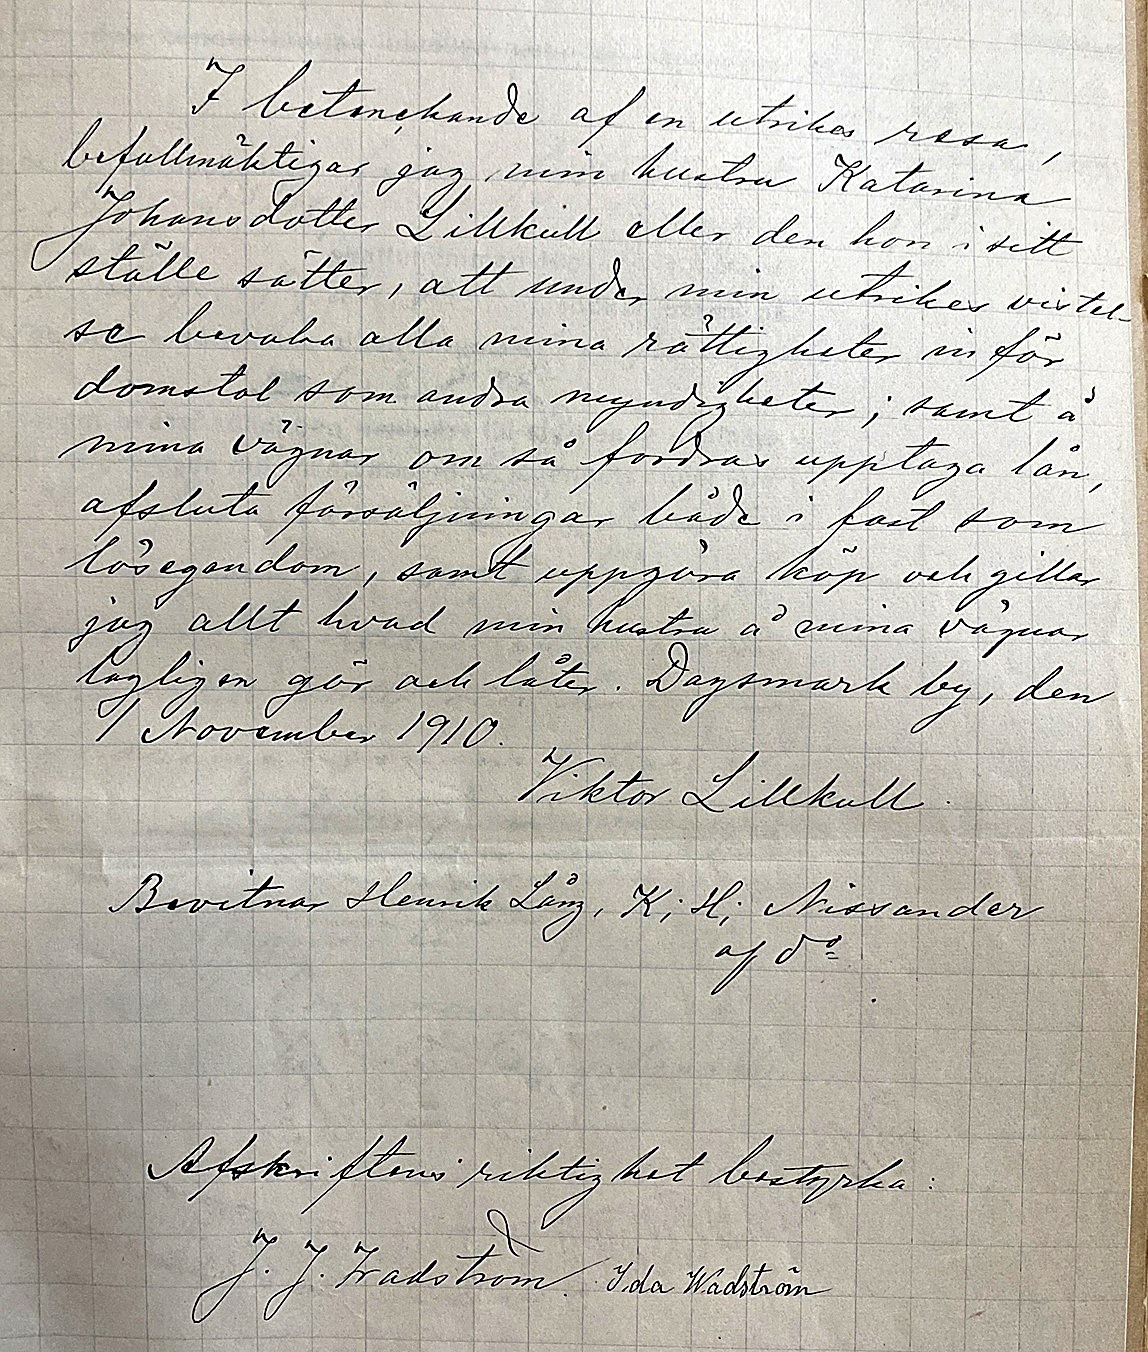 I betenckande af en utrikes resa,
befullmäktigar jag min hustru Katarina
Johansdotter Lillkull eller den hon i sitt
ställe sätter, att under min utrikes vistel-
se bevaka alla mina rättigheter inför
domstol som andra myndigheter; samt å
mina vägnar om så fordras upptaga lån,
afsluta försäljningar både i fast som
lösegendom, samt uppgöra köp och gillar
jag allt hvad min hustru å mina vägnar
lagligen gör och låter. Dagsmark by, den
1 November 1910.
Viktor Lillkull.
Bevitnar Henrik Lång, K; H; Nissander
af do
Afskriftens riktighet bestyrka:
J. J. Wadström. Ida Wadström